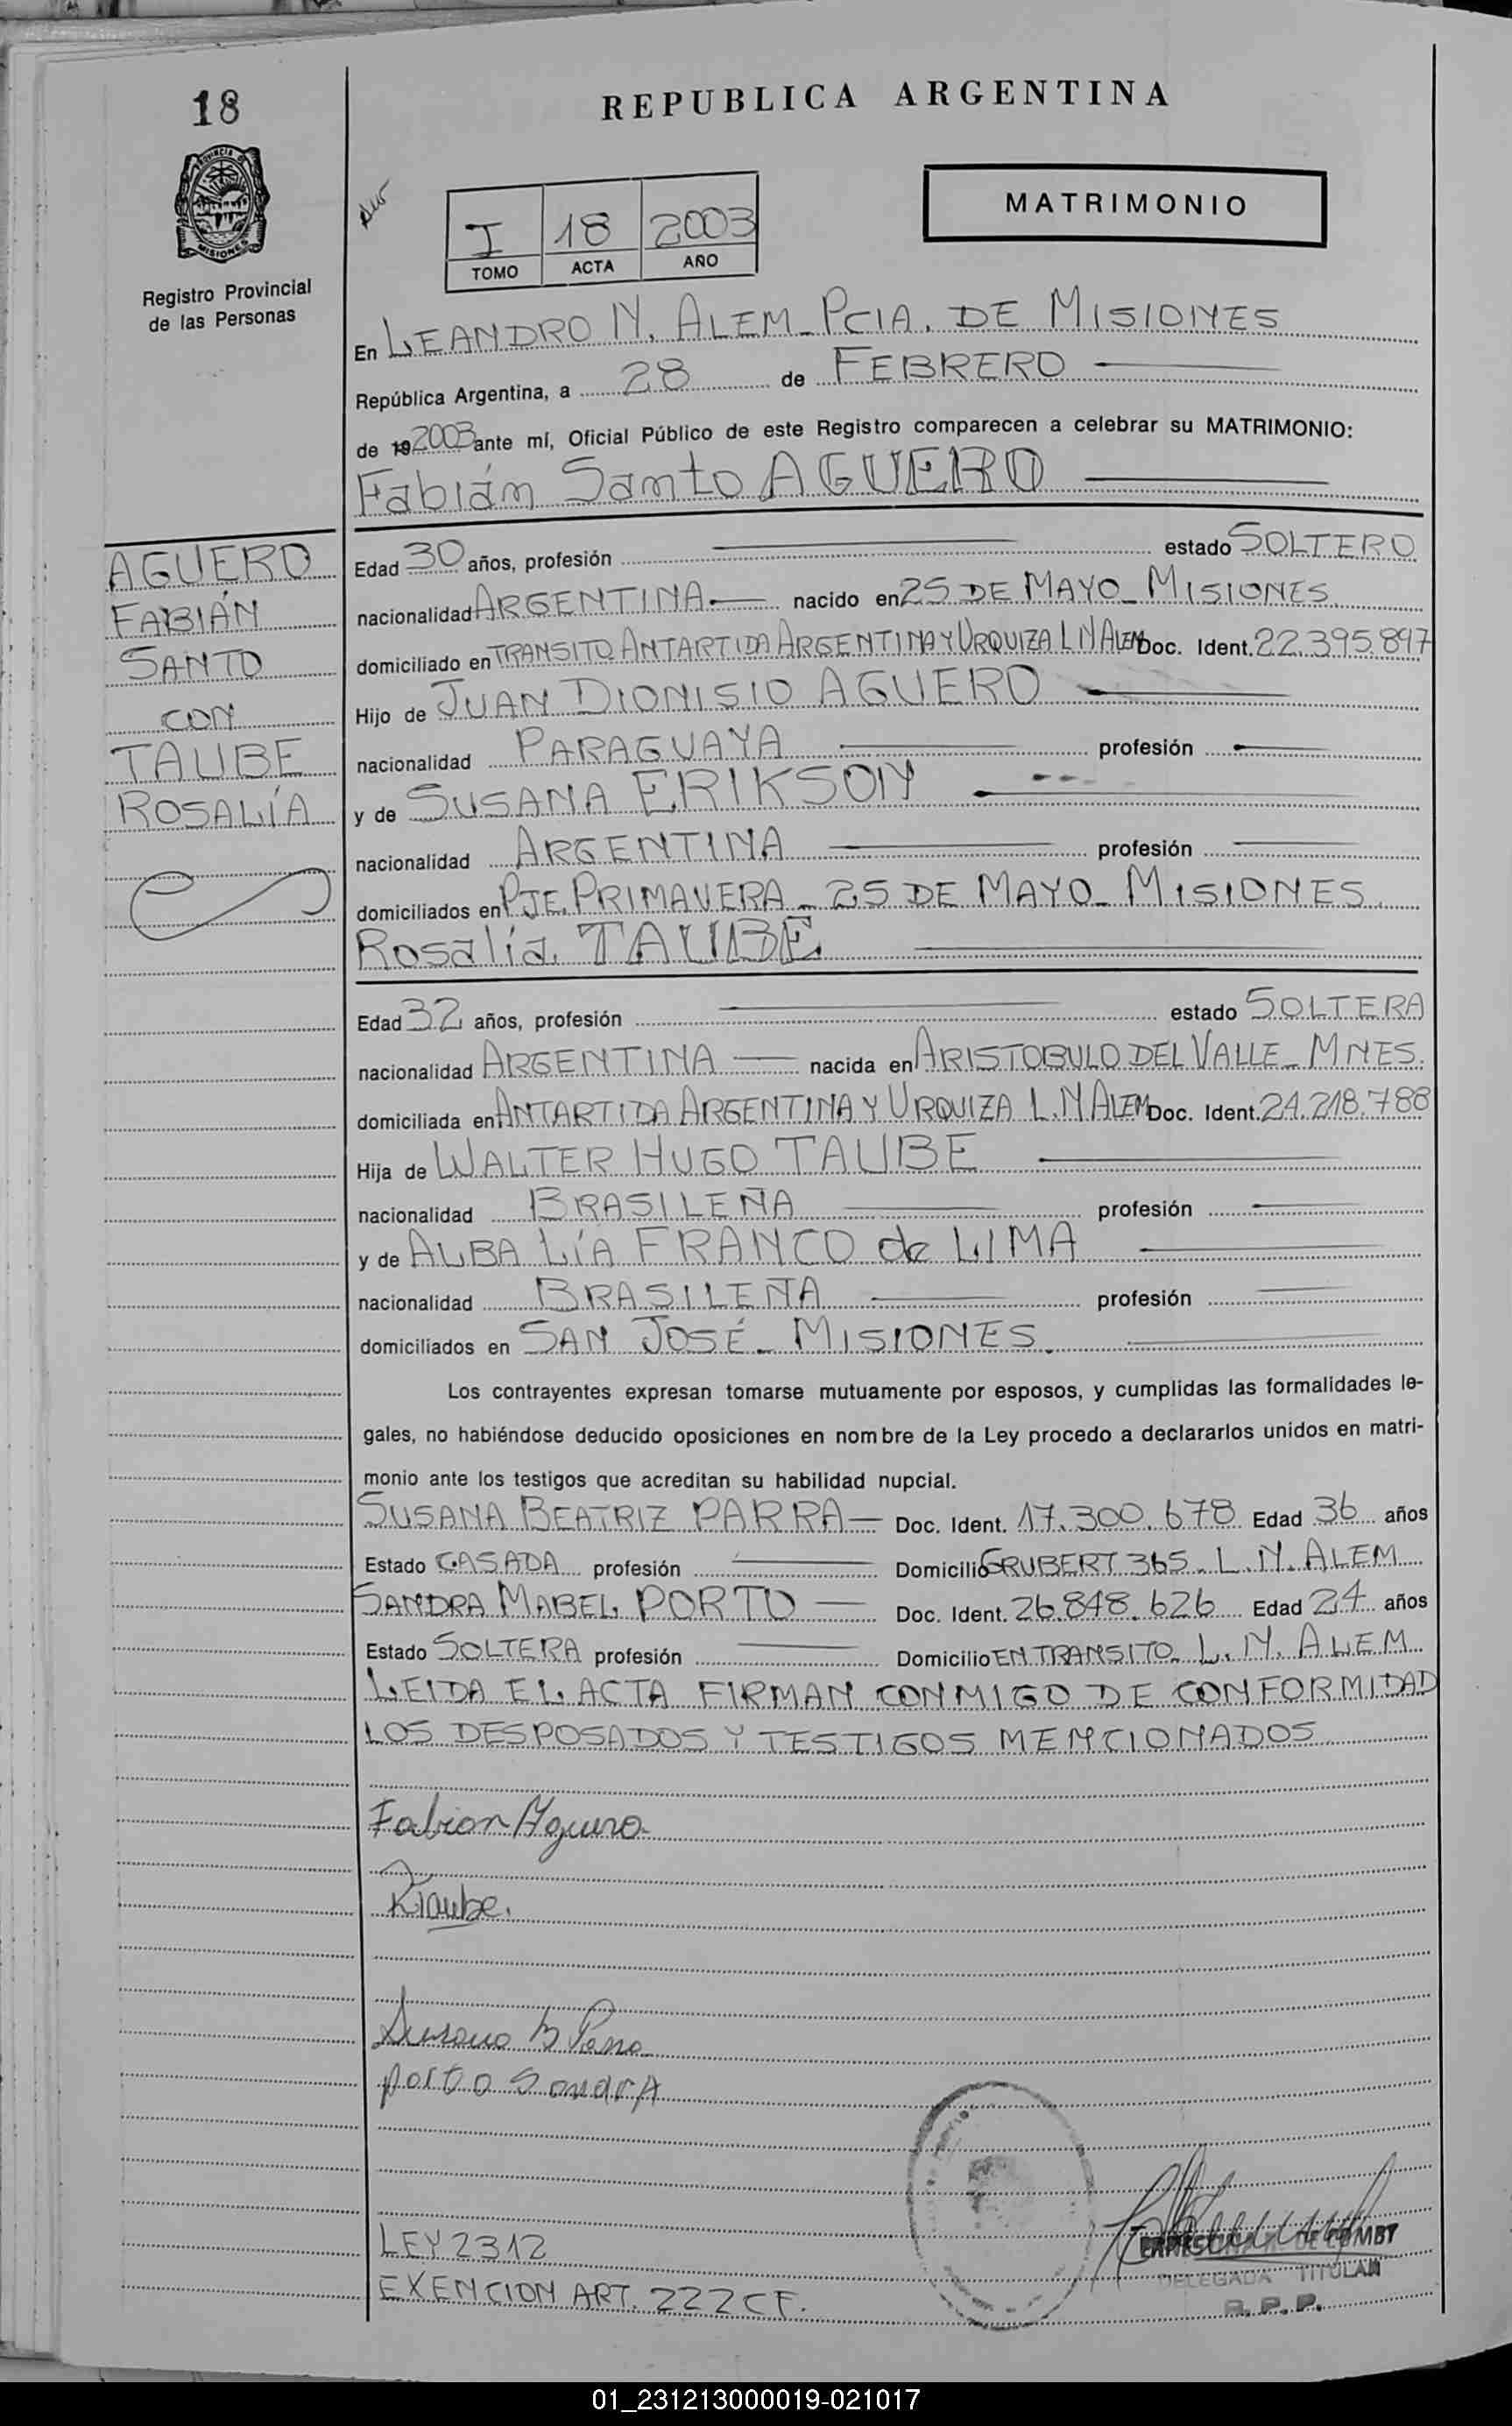 18
REPUBLICA ARGENTINA
MATRIMONIO
I 18 2003
TOMO ACTA AÑO
PROVINCIA DE
MISIONES
Registro Provincial
de las Personas
En LEANDRO N. ALEM - PCIA. DE MISIONES
República Argentina, a 28 de FEBRERO
de 19 2003 ante mí, Oficial Público de este Registro comparecen a celebrar su MATRIMONIO:
Fabián Santo AGUERO
AGUERO
FABIÁN
SANTO
CON
TAUBE
ROSALÍA
Edad 30 años, profesión estado SOLTERO
nacionalidad ARGENTINA nacido en 25 DE MAYO - MISIONES
domiciliado en TRANSITO ANTARTIDA ARGENTINA Y URQUIZA L N ALEM Doc. Ident. 22.395.897
Hijo de JUAN DIONISIO AGUERO
nacionalidad PARAGUAYA profesión
y de SUSANA ERIKSON
nacionalidad ARGENTINA profesión
domiciliados en PJE. PRIMAVERA - 25 DE MAYO - MISIONES.
Rosalía TAUBE
Edad 32 años, profesión estado SOLTERA
nacionalidad ARGENTINA nacida en ARISTOBULO DEL VALLE - MNES.
domiciliada en ANTARTIDA ARGENTINA Y URQUIZA L.N ALEM Doc. Ident. 24.218.788
Hija de WALTER HUGO TAUBE
nacionalidad BRASILEÑA profesión
y de ALBA LÍA FRANCO de LIMA
nacionalidad BRASILEÑA profesión
domiciliados en SAN JOSÉ - MISIONES.
Los contrayentes expresan tomarse mutuamente por esposos, y cumplidas las formalidades le-
gales, no habiéndose deducido oposiciones en nombre de la Ley procedo a declararlos unidos en matri-
monio ante los testigos que acreditan su habilidad nupcial.
SUSANA BEATRIZ PARRA — Doc. Ident. 17.300.678 Edad 36 años
Estado CASADA profesión Domicilio GRUBERT 365 - L.N. ALEM
SANDRA MABEL PORTO — Doc. Ident. 26.848.626 Edad 24 años
Estado SOLTERA profesión Domicilio EN TRANSITO - L.N. ALEM
LEIDA EL ACTA FIRMAN CONMIGO DE CONFORMIDAD
LOS DESPOSADOS Y TESTIGOS MENCIONADOS
Fabian Aguero
RTaube.
Susana B Parra
porto SandrA
DELEGADA TITULAR
R.P.P.
LEY 2312
EXENCION ART. 222 CF.
01_231213000019-021017